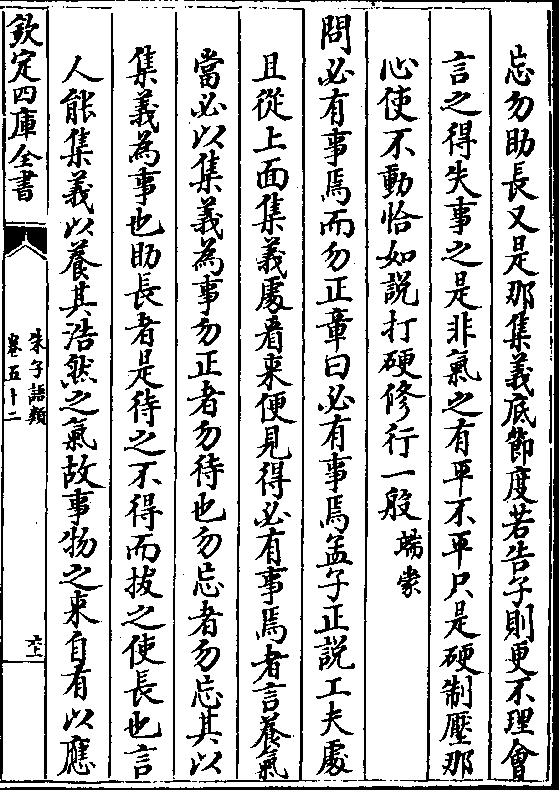 忘勿助長又是那集義底節度若告子則更不理會
言之得失事之是非氣之有平不平只是硬制壓那
心使不動恰如說打硬修行一般端蒙
問必有事焉而勿正章曰必有事焉孟子正說工夫處
且從上面集義處看來便見得必有事焉者言養氣
當必以集義為事勿正者勿待也勿忘者勿忘其以
集義為事也助長者是待之不得而拔之使長也言
人能集義以養其浩然之氣故事物之來自有以應
欽定四庫全書
朱子語類
卷五十二